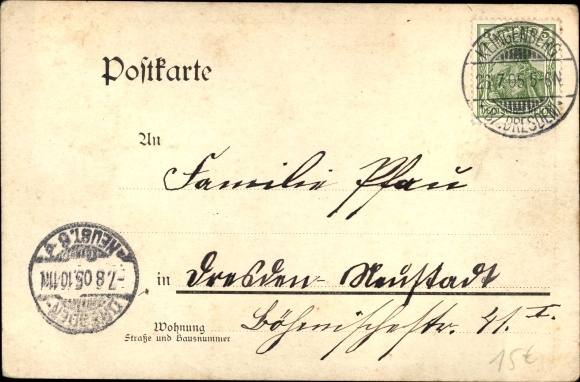 Postkarte
KLINGENBERG
Bz. DRESDEN
An
Familie Pfau
in Dresden-Neustadt
Wohnung
Straße und Hausnummer
Böhmischestr. 41. I.
DRESDEN-
-7.8.05.10-11N
NEUST. 8
15€